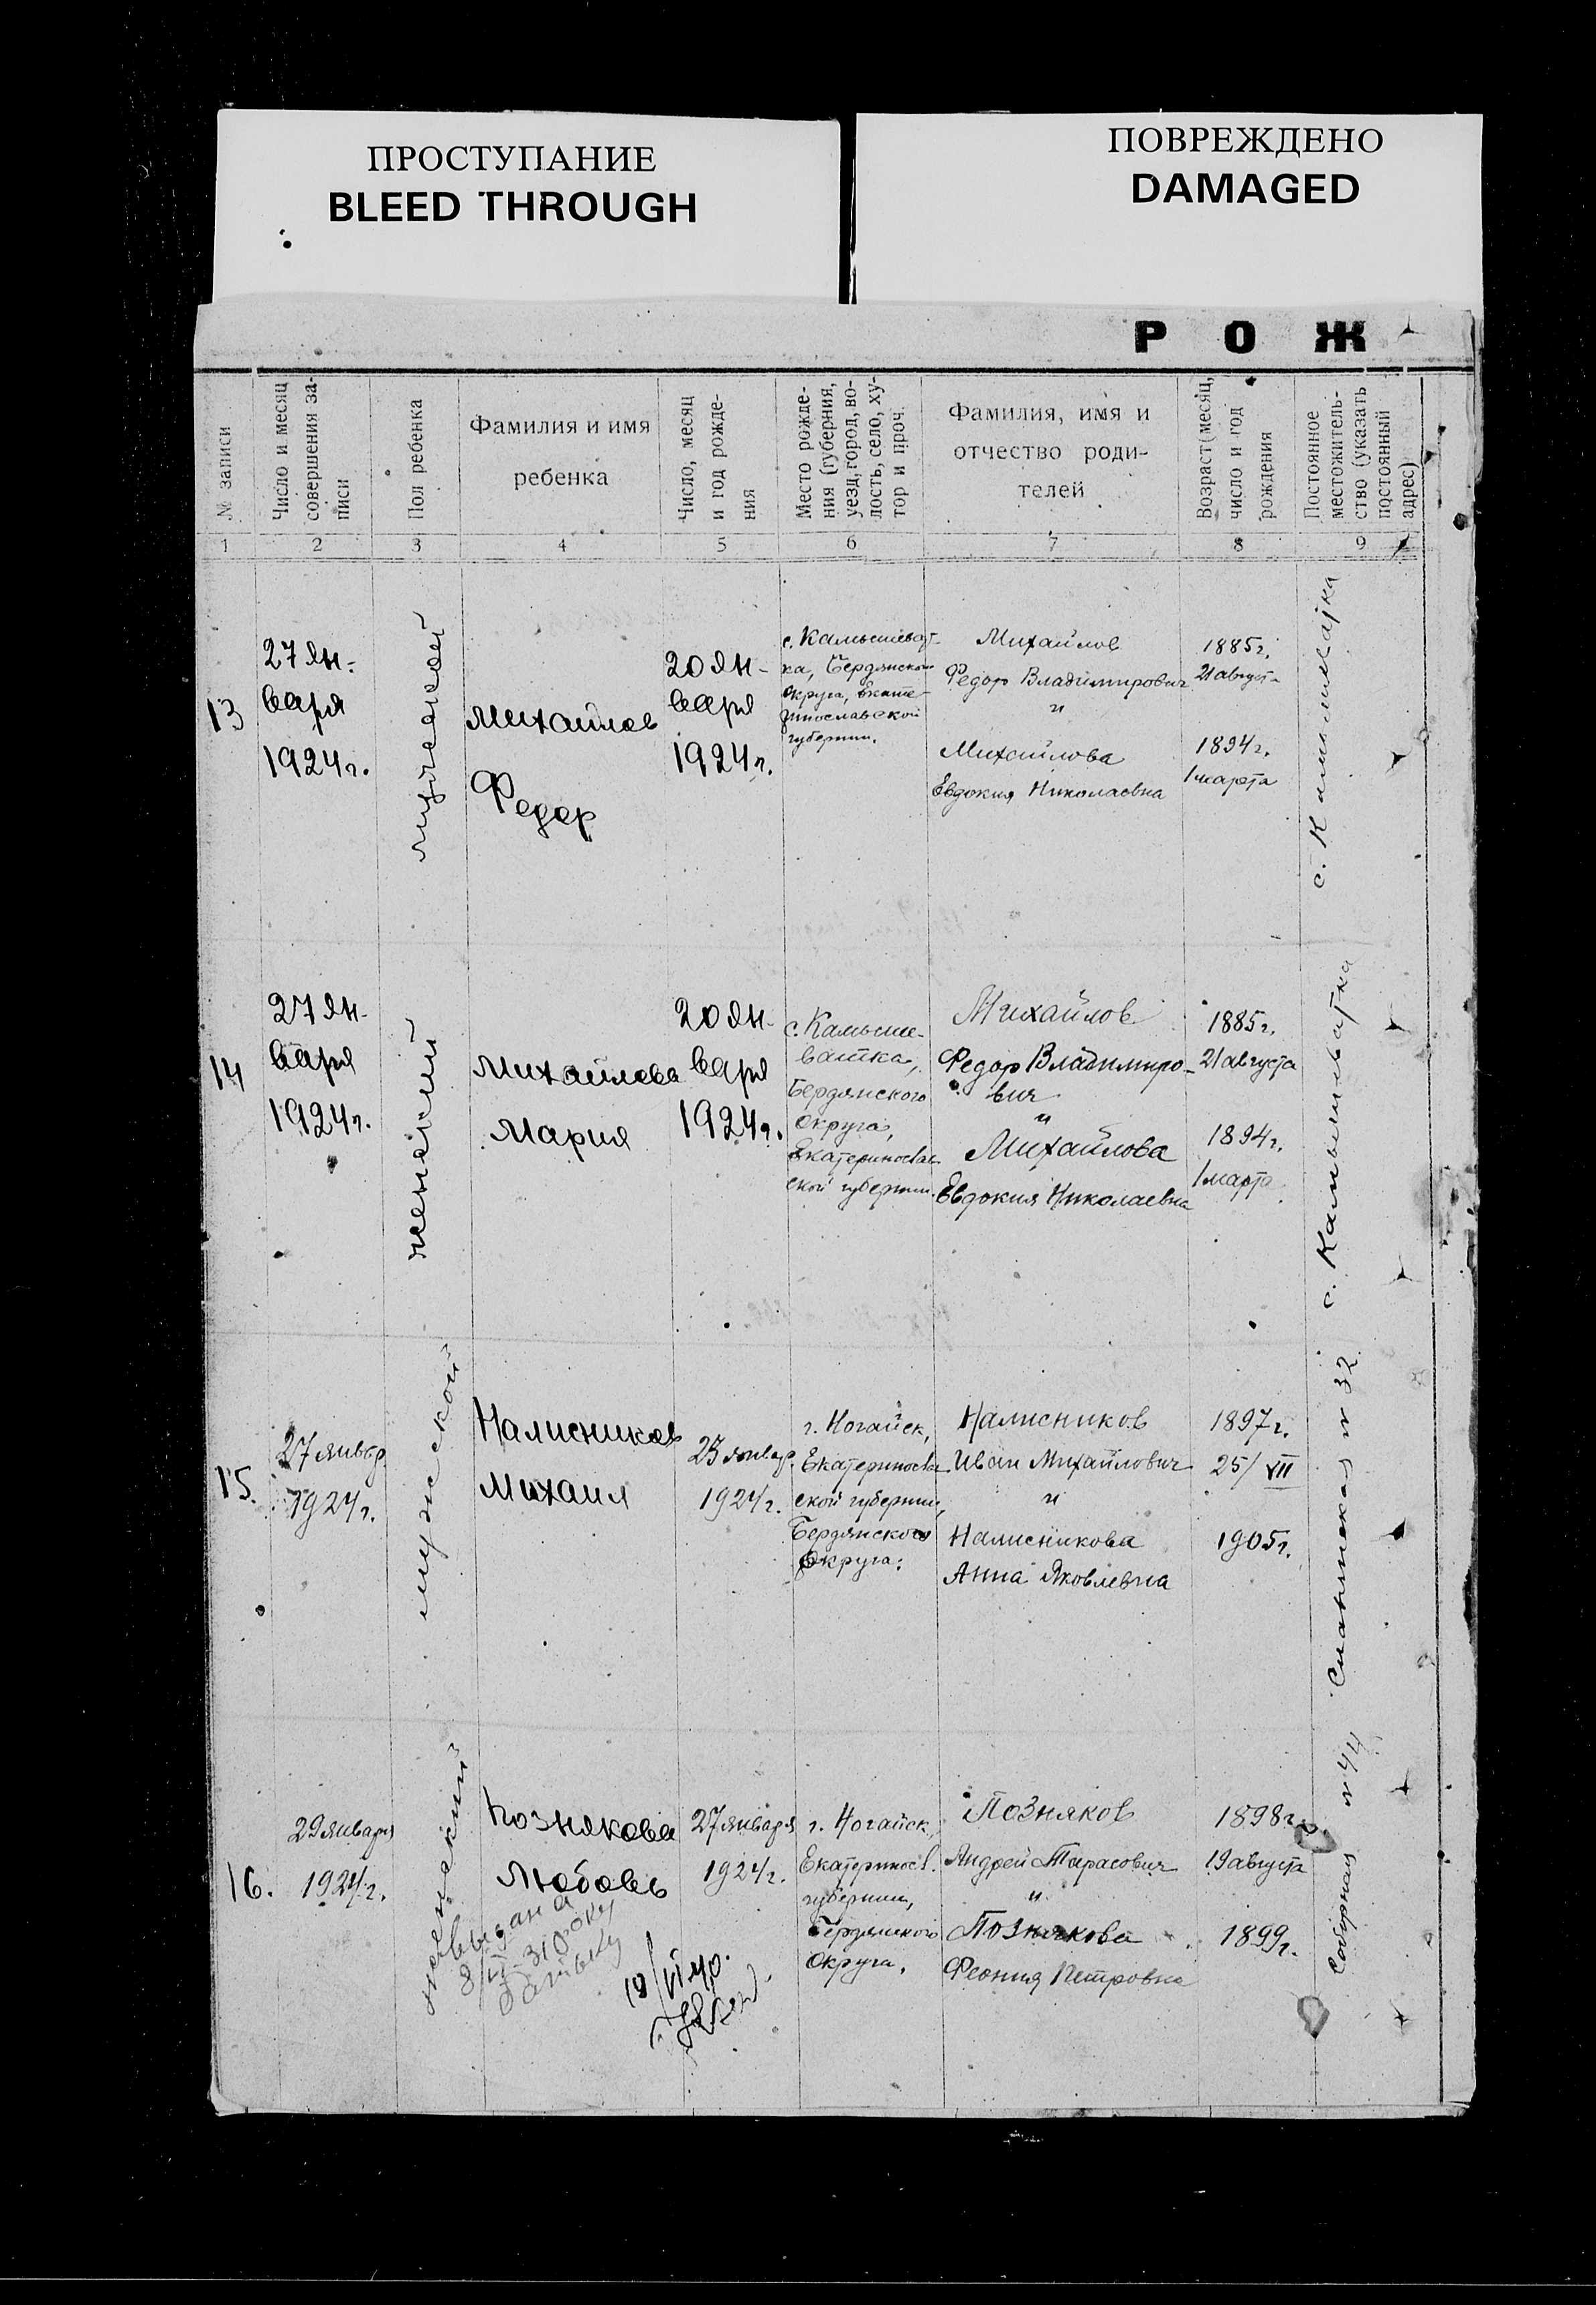 ПРОСТУПАНИЕ
BLEED THROUGH
ПОВРЕЖДЕНО
DAMAGED
Р О Ж
№ записи
Число и месяц
совершения за-
писи
Пол ребенка
Фамилия и имя
ребенка
Число, месяц
и год рожде-
ния
Место рожде-
ния (губерния,
уезд, город, во-
лость, село, ху-
тор и проч.
Фамилия, имя и
отчество роди-
телей
Возраст (месяц,
число и год
рождения
Постоянное
местожитель-
ство (указать
постоянный
адрес)
1 2 3 4 5 6 7 8 9
13
27 Ян-
варя
1924 г.
мужской
Михайлов
Федор
20 Ян-
варя
1924 г.
с. Камышеват-
ка, Бердянского
Округа, Екате-
ринославской
губернии.
Михайлов
Федор Владимирович
и
Михайлова
Евдокия Николаевна
1885 г.
21 август
1894 г.
1 марта
с. Камышеватка
14
27 Ян-
варя
1924 г.
женский
Михайлова
Мария
20 Ян-
варя
1924 г.
с. Камыше-
ватка,
Бердянского
Округа,
Екатеринослав
ской губернии.
Михайлов
Федор Владимиро-
вич
и
Михайлова
Евдокия Николаевна
1885 г.
21 августа
1894 г.
1 марта
с. Камышеватка
15.
27 январ
1924 г.
мужской
Налисников
Михаил
23 январ.
1924 г.
г. Ногайск,
Екатеринослав
ской губернии,
Бердянского
Округа.
Налисников
Иван Михайлович
и
Налисникова
Анна Яковлевна
1897 г.
25/VII
1905 г.
№ 32
16.
29 января
1924 г.
женский
Познякова
Любовь
27 января
1924 г.
г. Ногайск,
Екатериносл.
губернии,
Бердянского
Округа.
Позняков
Андрей Тарасович
и
Познякова
Феония Петровна
1898 г.
19 августа
1899 г.
Соборная № 44
выдана